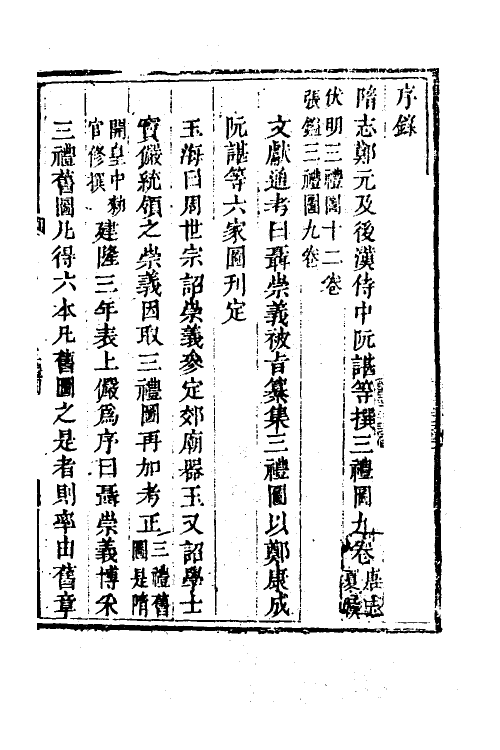 序錄
隋志鄭元及後漢侍中阮諶等撰三禮圖九卷唐志夏侯
伏明三禮圖十二卷
張鎰三禮圖九卷
文獻通考曰聶崇義被旨纂集三禮圖以鄭康成
阮諶等六家圖刊定
玉海曰周世宗詔崇義參定郊廟器玉又詔學士
竇儼統領之崇義因取三禮圖再加考正三禮舊圖是隋
開皇中勑官修撰建隆三年表上儼爲序曰聶崇義博采
三禮舊圖凡得六本凡舊圖之是者則率由舊章